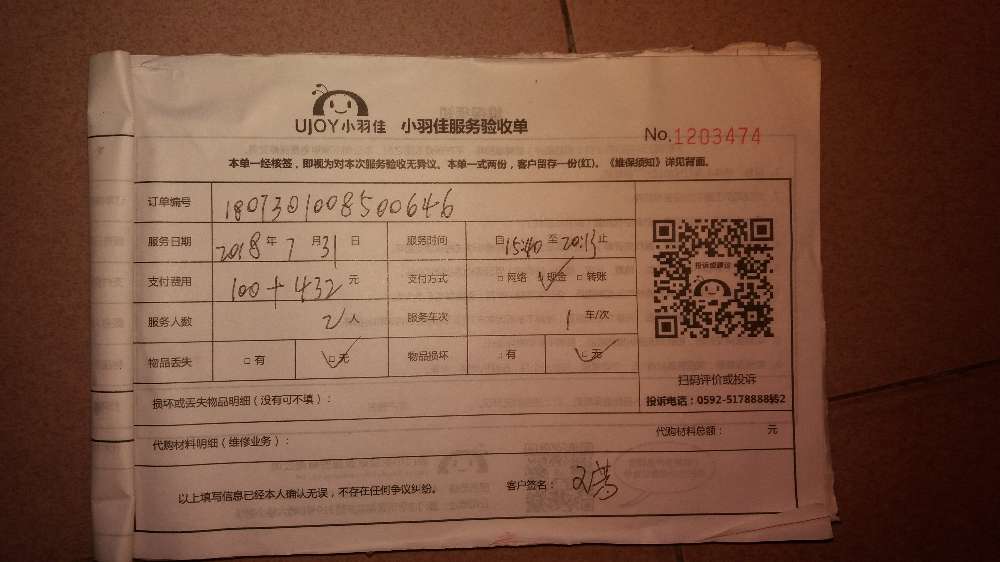 UJOY小羽佳 小羽佳服务验收单
No.1203474
本单一经核签，即视为对本次服务验收无异议。本单一式两份，客户留存一份(红)。《维保须知》详见背面。
订单编号 1807301008500646
服务日期 2018年7月31日 服务时间 自15:40至20:13止
支付费用 100+432元 支付方式 □网络 ☑现金 □转账
服务人数 2人 服务车次 1车/次
物品丢失 □有 ☑无 物品损坏 □有 ☑无
投诉或建议
扫码评价或投诉
投诉电话：0592-5178888转2
损坏或丢失物品明细（没有可不填）：
代购材料明细（维修业务）： 代购材料总额： 元
以上填写信息已经本人确认无误，不存在任何争议纠纷。 客户签名：